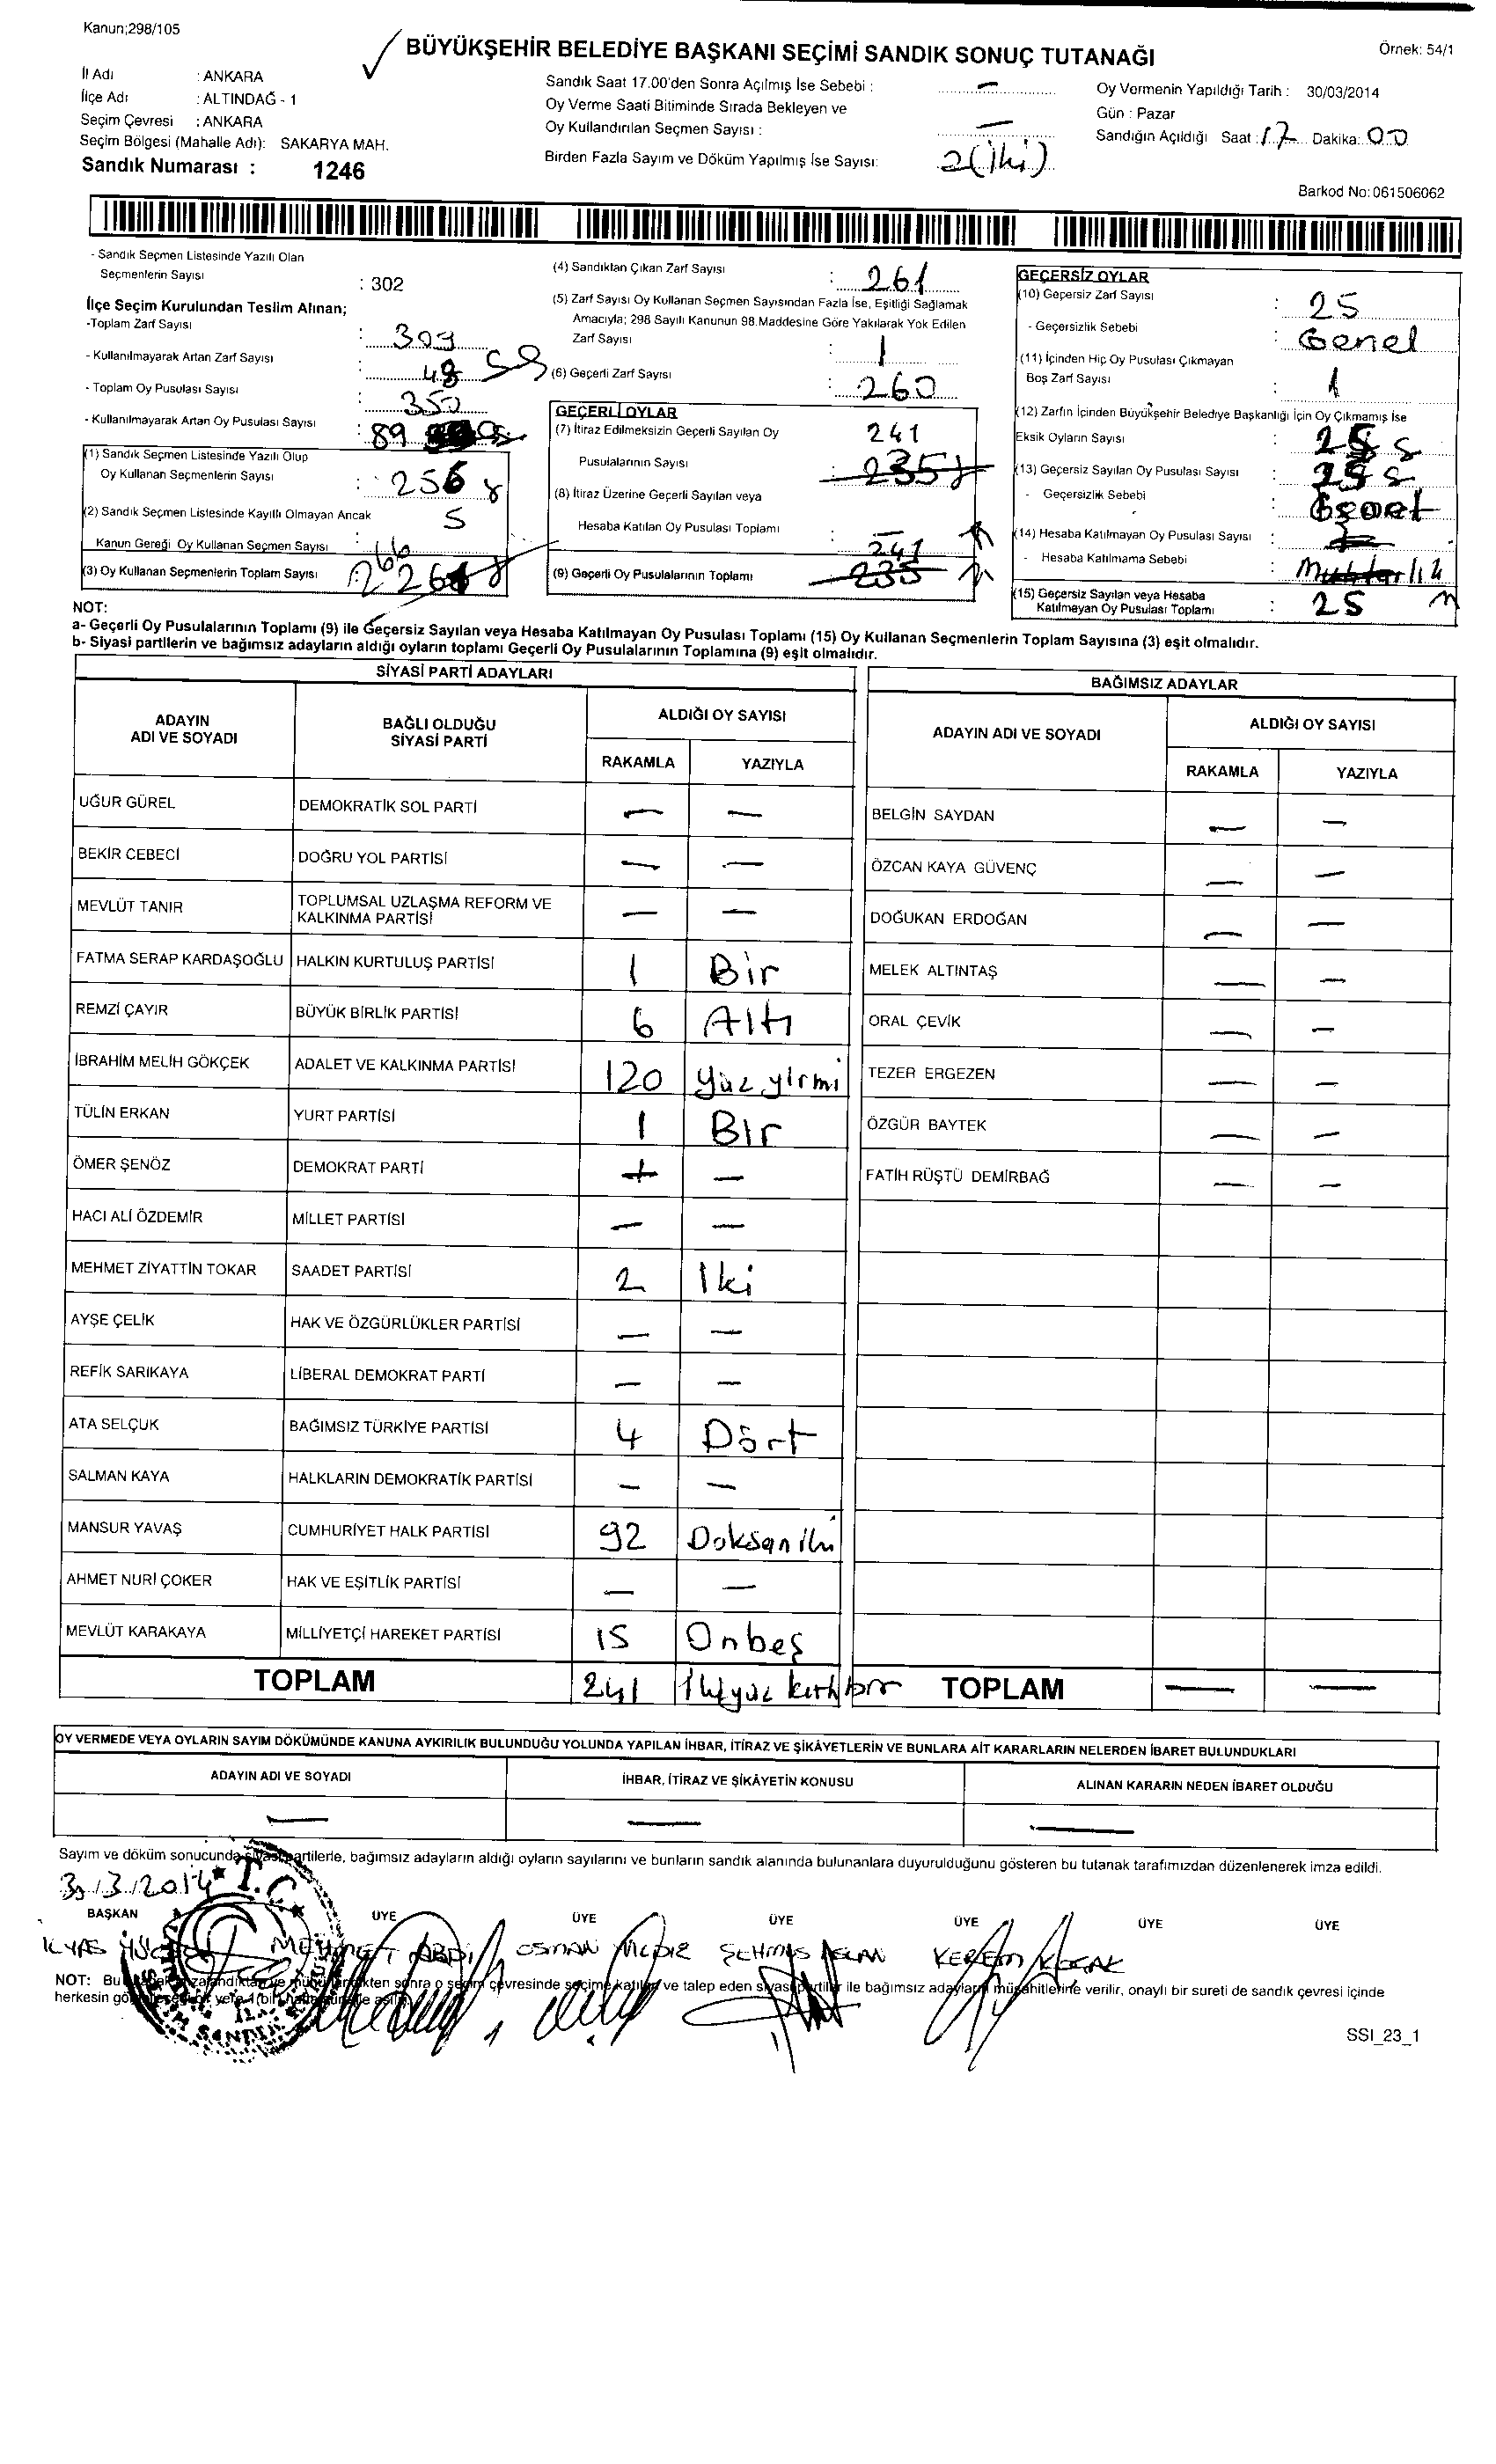 Kanun;298/105
BÜYÜKŞEHİR BELEDİYE BAŞKANI SEÇİMİ SANDIK SONUÇ TUTANAĞI
Örnek: 54/1
İl Adı : ANKARA
İlçe Adı : ALTINDAĞ - 1
Seçim Çevresi : ANKARA
Seçim Bölgesi (Mahalle Adı): SAKARYA MAH.
Sandık Numarası : 1246
Sandık Saat 17.00'den Sonra Açılmış İse Sebebi : —
Oy Verme Saati Bitiminde Sırada Bekleyen ve
Oy Kullandırılan Seçmen Sayısı : —
Birden Fazla Sayım ve Döküm Yapılmış İse Sayısı: 2(iki)
Oy Vermenin Yapıldığı Tarih : 30/03/2014
Gün : Pazar
Sandığın Açıldığı Saat : 17 Dakika: 00
Barkod No: 061506062
- Sandık Seçmen Listesinde Yazılı Olan
Seçmenlerin Sayısı : 302
İlçe Seçim Kurulundan Teslim Alınan;
-Toplam Zarf Sayısı : 309
- Kullanılmayarak Artan Zarf Sayısı : 48
- Toplam Oy Pusulası Sayısı : 350
- Kullanılmayarak Artan Oy Pusulası Sayısı : 89
(1) Sandık Seçmen Listesinde Yazılı Olup
Oy Kullanan Seçmenlerin Sayısı : 256
(2) Sandık Seçmen Listesinde Kayıtlı Olmayan Ancak 5
Kanun Gereği Oy Kullanan Seçmen Sayısı :
(3) Oy Kullanan Seçmenlerin Toplam Sayısı
(4) Sandıktan Çıkan Zarf Sayısı : 261
(5) Zarf Sayısı Oy Kullanan Seçmen Sayısından Fazla İse, Eşitliği Sağlamak
Amacıyla; 298 Sayılı Kanunun 98.Maddesine Göre Yakılarak Yok Edilen
Zarf Sayısı : 1
(6) Geçerli Zarf Sayısı : 260
GEÇERLİ OYLAR
(7) İtiraz Edilmeksizin Geçerli Sayılan Oy 241
Pusulalarının Sayısı : 235
(8) İtiraz Üzerine Geçerli Sayılan veya
Hesaba Katılan Oy Pusulası Toplamı : —
241
(9) Geçerli Oy Pusulalarının Toplamı 235
GEÇERSİZ OYLAR
(10) Geçersiz Zarf Sayısı : 25
- Geçersizlik Sebebi : Genel
(11) İçinden Hiç Oy Pusulası Çıkmayan
Boş Zarf Sayısı : 1
(12) Zarfın İçinden Büyükşehir Belediye Başkanlığı İçin Oy Çıkmamış İse
Eksik Oyların Sayısı :
(13) Geçersiz Sayılan Oy Pusulası Sayısı :
- Geçersizlik Sebebi :
(14) Hesaba Katılmayan Oy Pusulası Sayısı :
- Hesaba Katılmama Sebebi : Muhtarlık
(15) Geçersiz Sayılan veya Hesaba
Katılmayan Oy Pusulası Toplamı : 25
NOT:
a- Geçerli Oy Pusulalarının Toplamı (9) ile Geçersiz Sayılan veya Hesaba Katılmayan Oy Pusulası Toplamı (15) Oy Kullanan Seçmenlerin Toplam Sayısına (3) eşit olmalıdır.
b- Siyasi partilerin ve bağımsız adayların aldığı oyların toplamı Geçerli Oy Pusulalarının Toplamına (9) eşit olmalıdır.
SİYASİ PARTİ ADAYLARI
ADAYIN ADI VE SOYADI
BAĞLI OLDUĞU SİYASİ PARTİ
ALDIĞI OY SAYISI
RAKAMLA YAZIYLA
UĞUR GÜREL DEMOKRATİK SOL PARTİ — —
BEKİR CEBECİ DOĞRU YOL PARTİSİ — —
MEVLÜT TANIR TOPLUMSAL UZLAŞMA REFORM VE KALKINMA PARTİSİ — —
FATMA SERAP KARDAŞOĞLU HALKIN KURTULUŞ PARTİSİ 1 Bir
REMZİ ÇAYIR BÜYÜK BİRLİK PARTİSİ 6 Altı
İBRAHİM MELİH GÖKÇEK ADALET VE KALKINMA PARTİSİ 120 Yüz yirmi
TÜLİN ERKAN YURT PARTİSİ 1 Bir
ÖMER ŞENÖZ DEMOKRAT PARTİ — —
HACI ALİ ÖZDEMİR MİLLET PARTİSİ — —
MEHMET ZİYATTİN TOKAR SAADET PARTİSİ 2 İki
AYŞE ÇELİK HAK VE ÖZGÜRLÜKLER PARTİSİ — —
REFİK SARIKAYA LİBERAL DEMOKRAT PARTİ — —
ATA SELÇUK BAĞIMSIZ TÜRKİYE PARTİSİ 4 Dört
SALMAN KAYA HALKLARIN DEMOKRATİK PARTİSİ — —
MANSUR YAVAŞ CUMHURİYET HALK PARTİSİ 92 Doksan iki
AHMET NURİ ÇOKER HAK VE EŞİTLİK PARTİSİ — —
MEVLÜT KARAKAYA MİLLİYETÇİ HAREKET PARTİSİ 15 Onbeş
TOPLAM 241 İkiyüz kırkbir
BAĞIMSIZ ADAYLAR
ADAYIN ADI VE SOYADI
ALDIĞI OY SAYISI
RAKAMLA YAZIYLA
BELGİN SAYDAN — —
ÖZCAN KAYA GÜVENÇ — —
DOĞUKAN ERDOĞAN — —
MELEK ALTINTAŞ — —
ORAL ÇEVİK — —
TEZER ERGEZEN — —
ÖZGÜR BAYTEK — —
FATİH RÜŞTÜ DEMİRBAĞ — —
TOPLAM — —
OY VERMEDE VEYA OYLARIN SAYIM DÖKÜMÜNDE KANUNA AYKIRILIK BULUNDUĞU YOLUNDA YAPILAN İHBAR, İTİRAZ VE ŞİKÂYETLERİN VE BUNLARA AİT KARARLARIN NELERDEN İBARET BULUNDUKLARI
ADAYIN ADI VE SOYADI İHBAR, İTİRAZ VE ŞİKÂYETİN KONUSU ALINAN KARARIN NEDEN İBARET OLDUĞU
— — —
Sayım ve döküm sonucunda siyasi partilerle, bağımsız adayların aldığı oyların sayılarını ve bunların sandık alanında bulunanlara duyurulduğunu gösteren bu tutanak tarafımızdan düzenlenerek imza edildi.
T.C
BAŞKAN ÜYE ÜYE ÜYE ÜYE ÜYE ÜYE
İLYAS MEHMET ABDİ OSMAN ŞEHMUS ASLAN KEREM
NOT: Bu sonra o seçim çevresinde seçime katılan ve talep eden siyasi partiler ile bağımsız adayların müşahitlerine verilir, onaylı bir sureti de sandık çevresi içinde
herkesin
SSI_23_1